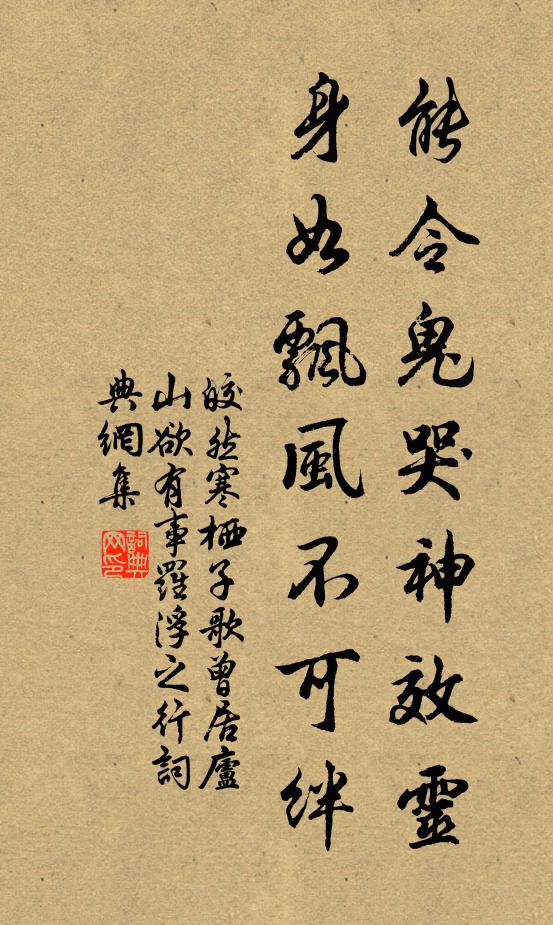 能令鬼哭神效靈
身如飄風不可絆
皎然寒栖子歌曾居廬
山欲有事羅浮之行詞
典網集
詞典
网印